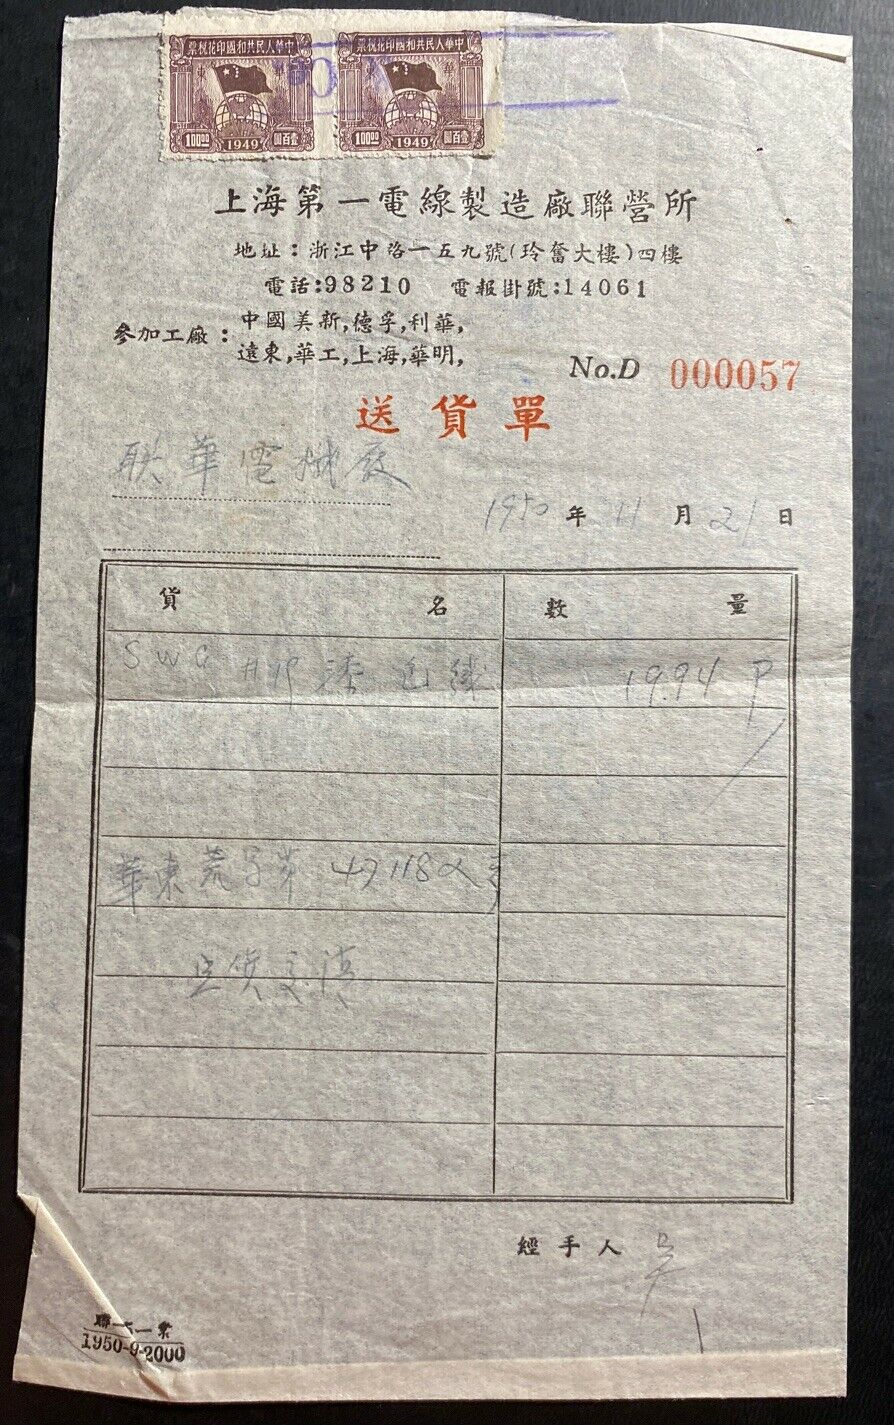 中華人民共和國印花稅票 中華人民共和國印花稅票
華 東 華 東
100.00 1949 壹百圓 100.00 1949 壹百圓
上海第一電線製造廠聯營所
地址：浙江中路一五九號(玲奮大樓)四樓
電話:98210 電報掛號:14061
參加工廠：中國美新,德孚,利華,
遠東,華工,上海,華明,
No.D 000057
送貨單
联華電機廠
1950年 11月 21日
貨名 數量
SWG #19 漆包線 19.94 P
華東 字第 118
經手人 吳
1950-9-2000